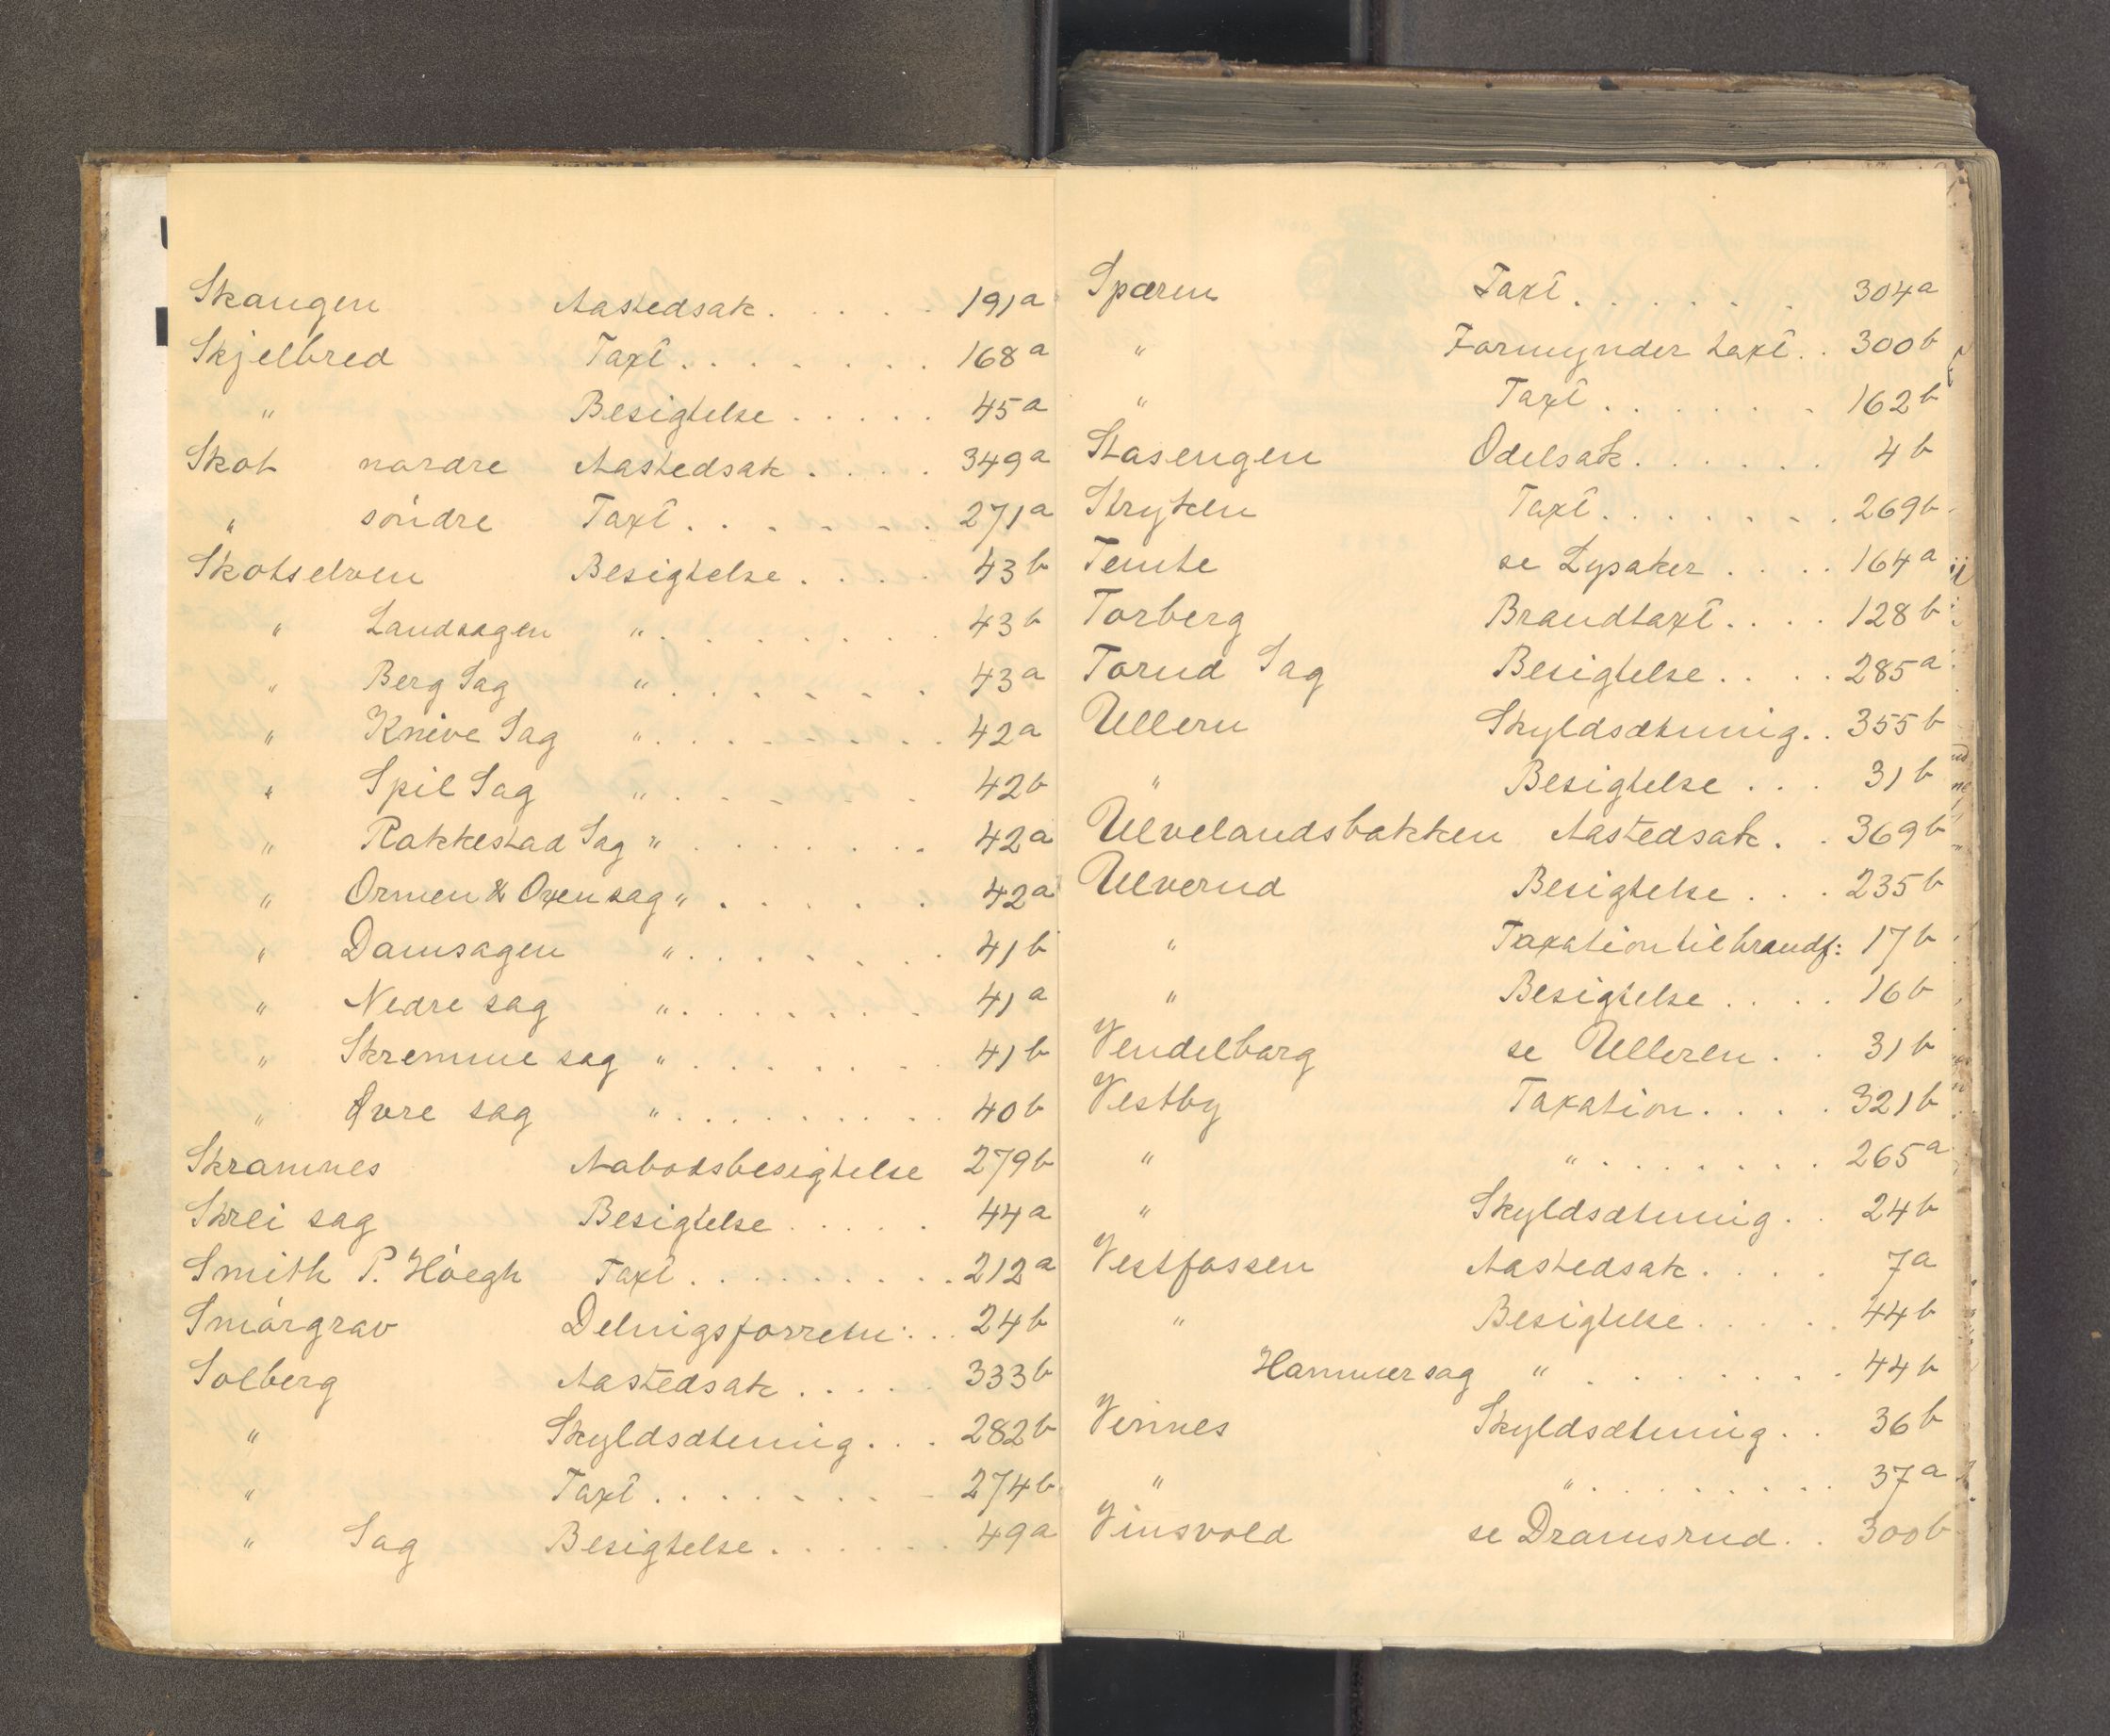 Skaugen Aastedsak . . . . . 191a
Skjelbred Taxt . . . . . . . 168a
" Besigtelse . . . . . 45a
Skot nordre Aastedsak . . . . 349a
" söndre Taxt . . . . . . . 271a
Skotselven Besigtelse . . . . 43b
" Landsagen " . . . . . . . 43b
" Berg Sag " . . . . . . . 43a
" Knive Sag " . . . . . . . . 42a
" Spil Sag " . . . . . . 42b
" Rakkestad Sag " . . . . . . . 42a
" Ormen & Oxen sag " . . . . . . 42a
" Damsagen " . . . . . . . 41b
" Nedre sag " . . . . . . . 41a
" Skremme sag " . . . . . . . 41b
" Øvre sag " . . . . . . . . 40b
Skramnes Aabodsbesigtelse 279b
Skrei sag Besigtelse . . . . . 44a
Smith P. Höegh Taxt . . . . . . . . . 212a
Smörgrav Delnigsforretn: . . 24b
Solberg Aastedsak . . . . . 333b
" Skyldsætning . . . 282b
" Taxt . . . . . . . 274b
" Sag Besigtelse . . . . . . 49a
Spæren Taxt . . . . . . 304a
" Formynder taxt . . 300b
" Taxt . . . . . . . 162b
Stasengen Odelsak . . . . . . 4b
Stryken Taxt . . . . . . . 269b
Temte se Lysaker . . . . 164a
Torberg Brandtaxt . . . . 128b
Torud Sag Besigtelse . . . . 285a
Ullern Skyldsætning . . 355b
" Besigtelse . . . 31b
Ulvelandsbakken Aastedsak . . 369b
Ulverud Besigtelse . . . 235b
" Taxation til brandf: 17b
" Besigtelse . . . . 16b
Vendelborg se Ulleren . . 31b
Vestby Taxation . . . . 321b
" " . . . . . . . . 265a
" Skyldsætning . . 24b
Vestfossen Aastedsak . . . . 7a
" Besigtelse . . . . . 44b
Hammer sag " . . . . . . . 44b
Vinnes Skyldsætning . . 36b
" " . . . . . . . . . 37a
Vinsvold se Dramsrud . . 300b